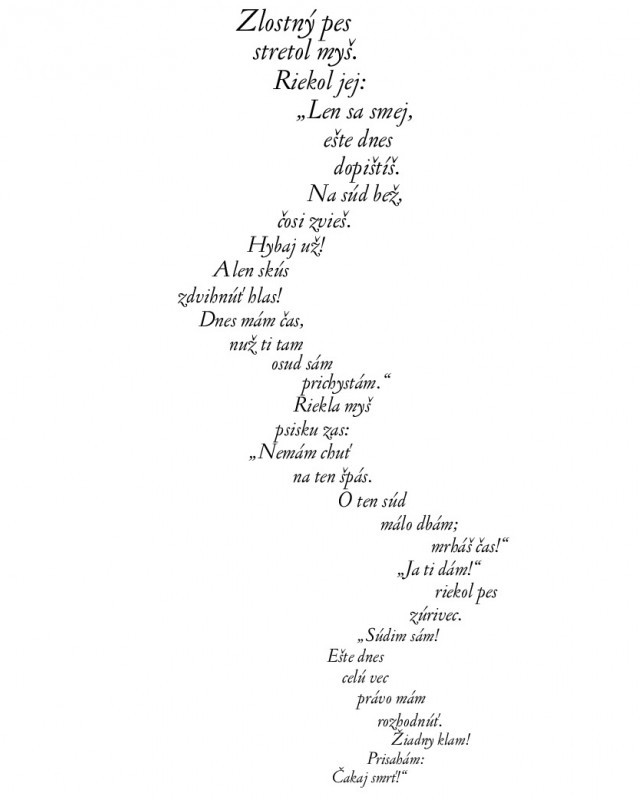 Zlostný pes
stretol myš.
Riekol jej:
„Len sa smej,
ešte dnes
dopištíš.
Na súd bež,
čosi zvieš.
Hybaj už!
A len skús
zdvihnúť hlas!
Dnes mám čas,
nuž ti tam
osud sám
prichystám.“
Riekla myš
psisku zas:
„Nemám chuť
na ten špás.
O ten súd
málo dbám;
mrháš čas!“
„Ja ti dám!“
riekol pes
zúrivec.
„Súdim sám!
Ešte dnes
celú vec
právo mám
rozhodnúť.
Žiadny klam!
Prisahám:
Čakaj smrť!“